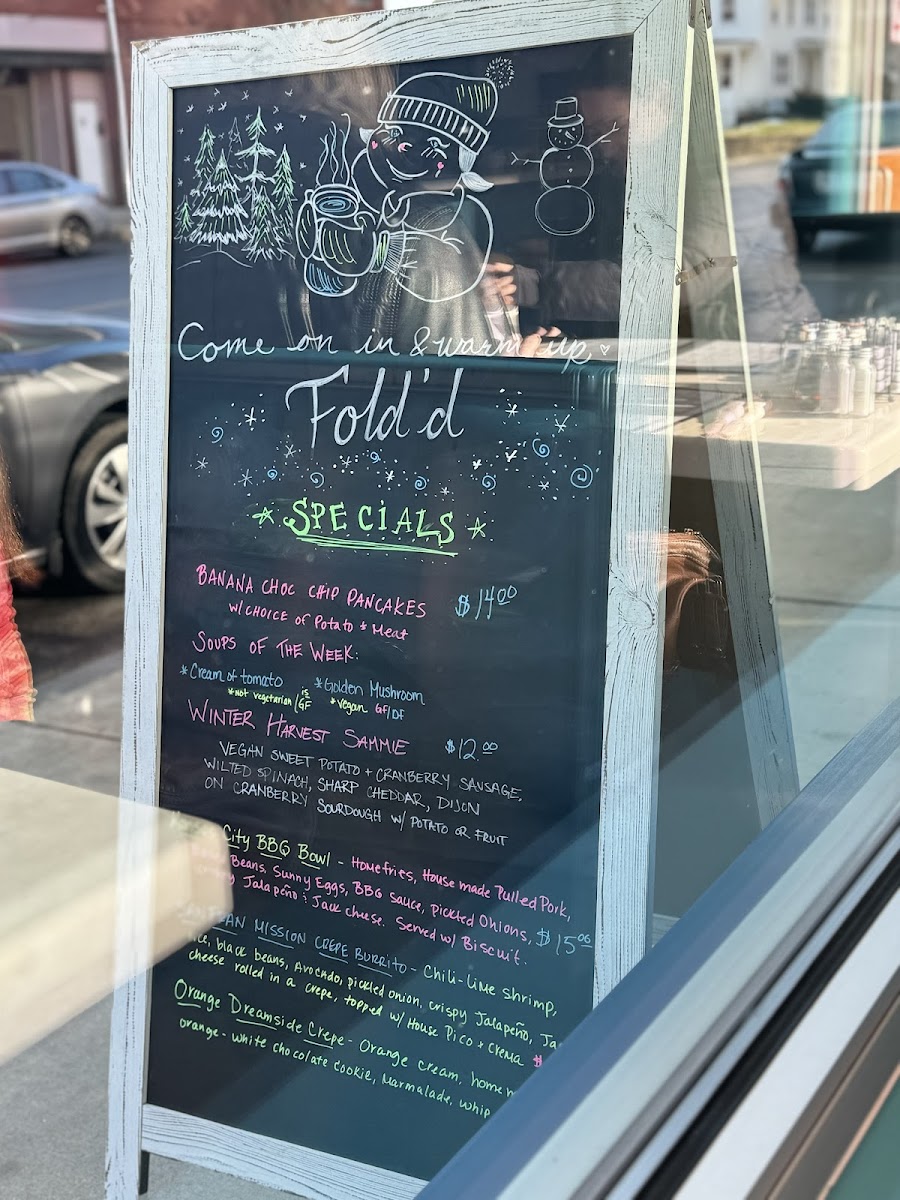 Come on in & warm up
Fold'd
SPECIALS
BANANA CHOC CHIP PANCAKES $14.00
W/ CHOICE of Potato & Meat
SOUPS OF THE WEEK:
*Cream of tomato *Golden Mushroom
*not vegetarian / is GF *vegan GF/DF
WINTER HARVEST SAMMIE $12.00
VEGAN SWEET POTATO + CRANBERRY SAUSAGE,
WILTED SPINACH, SHARP CHEDDAR, DIJON
ON CRANBERRY SOURDOUGH W/ POTATO OR FRUIT
City BBG Bowl - Homefries, House made Pulled Pork,
Beans, Sunny Eggs, BBG Sauce, pickled Onions, $15.00
Jalapeño & Jack cheese. Served w/ Biscuit.
MISSION CREPE BURRITO - Chili-Lime shrimp,
black beans, Avocado, pickled onion, crispy Jalapeño,
cheese rolled in a crepe, topped w/ House Pico + Crema
Orange Dreamside Crepe - Orange cream,
orange-white chocolate cookie, marmalade, whip